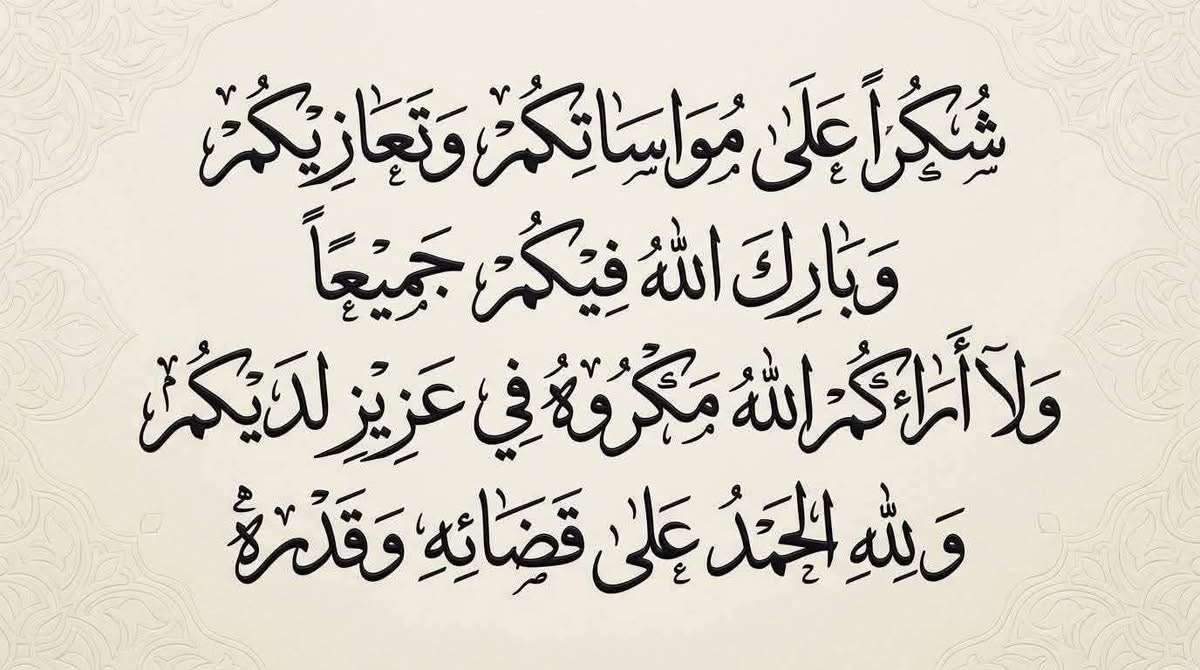 شُكُرًاً عَلَى مُوَاسَاتِكُمْ وَتَعَازِيْكُمْ
وَبَارِكَ اللهُ فِيْكُمْ جَمِيْعًاً
وَلَآ أَرَاءكُمْ اللهُ مَكْرُوْهُ فِي عَزِيْزٍ لدَيْكُمْ
وَلِلهِ الحَمْدُ عَلَى قَضَائِهِ وَقَدْرِهْ